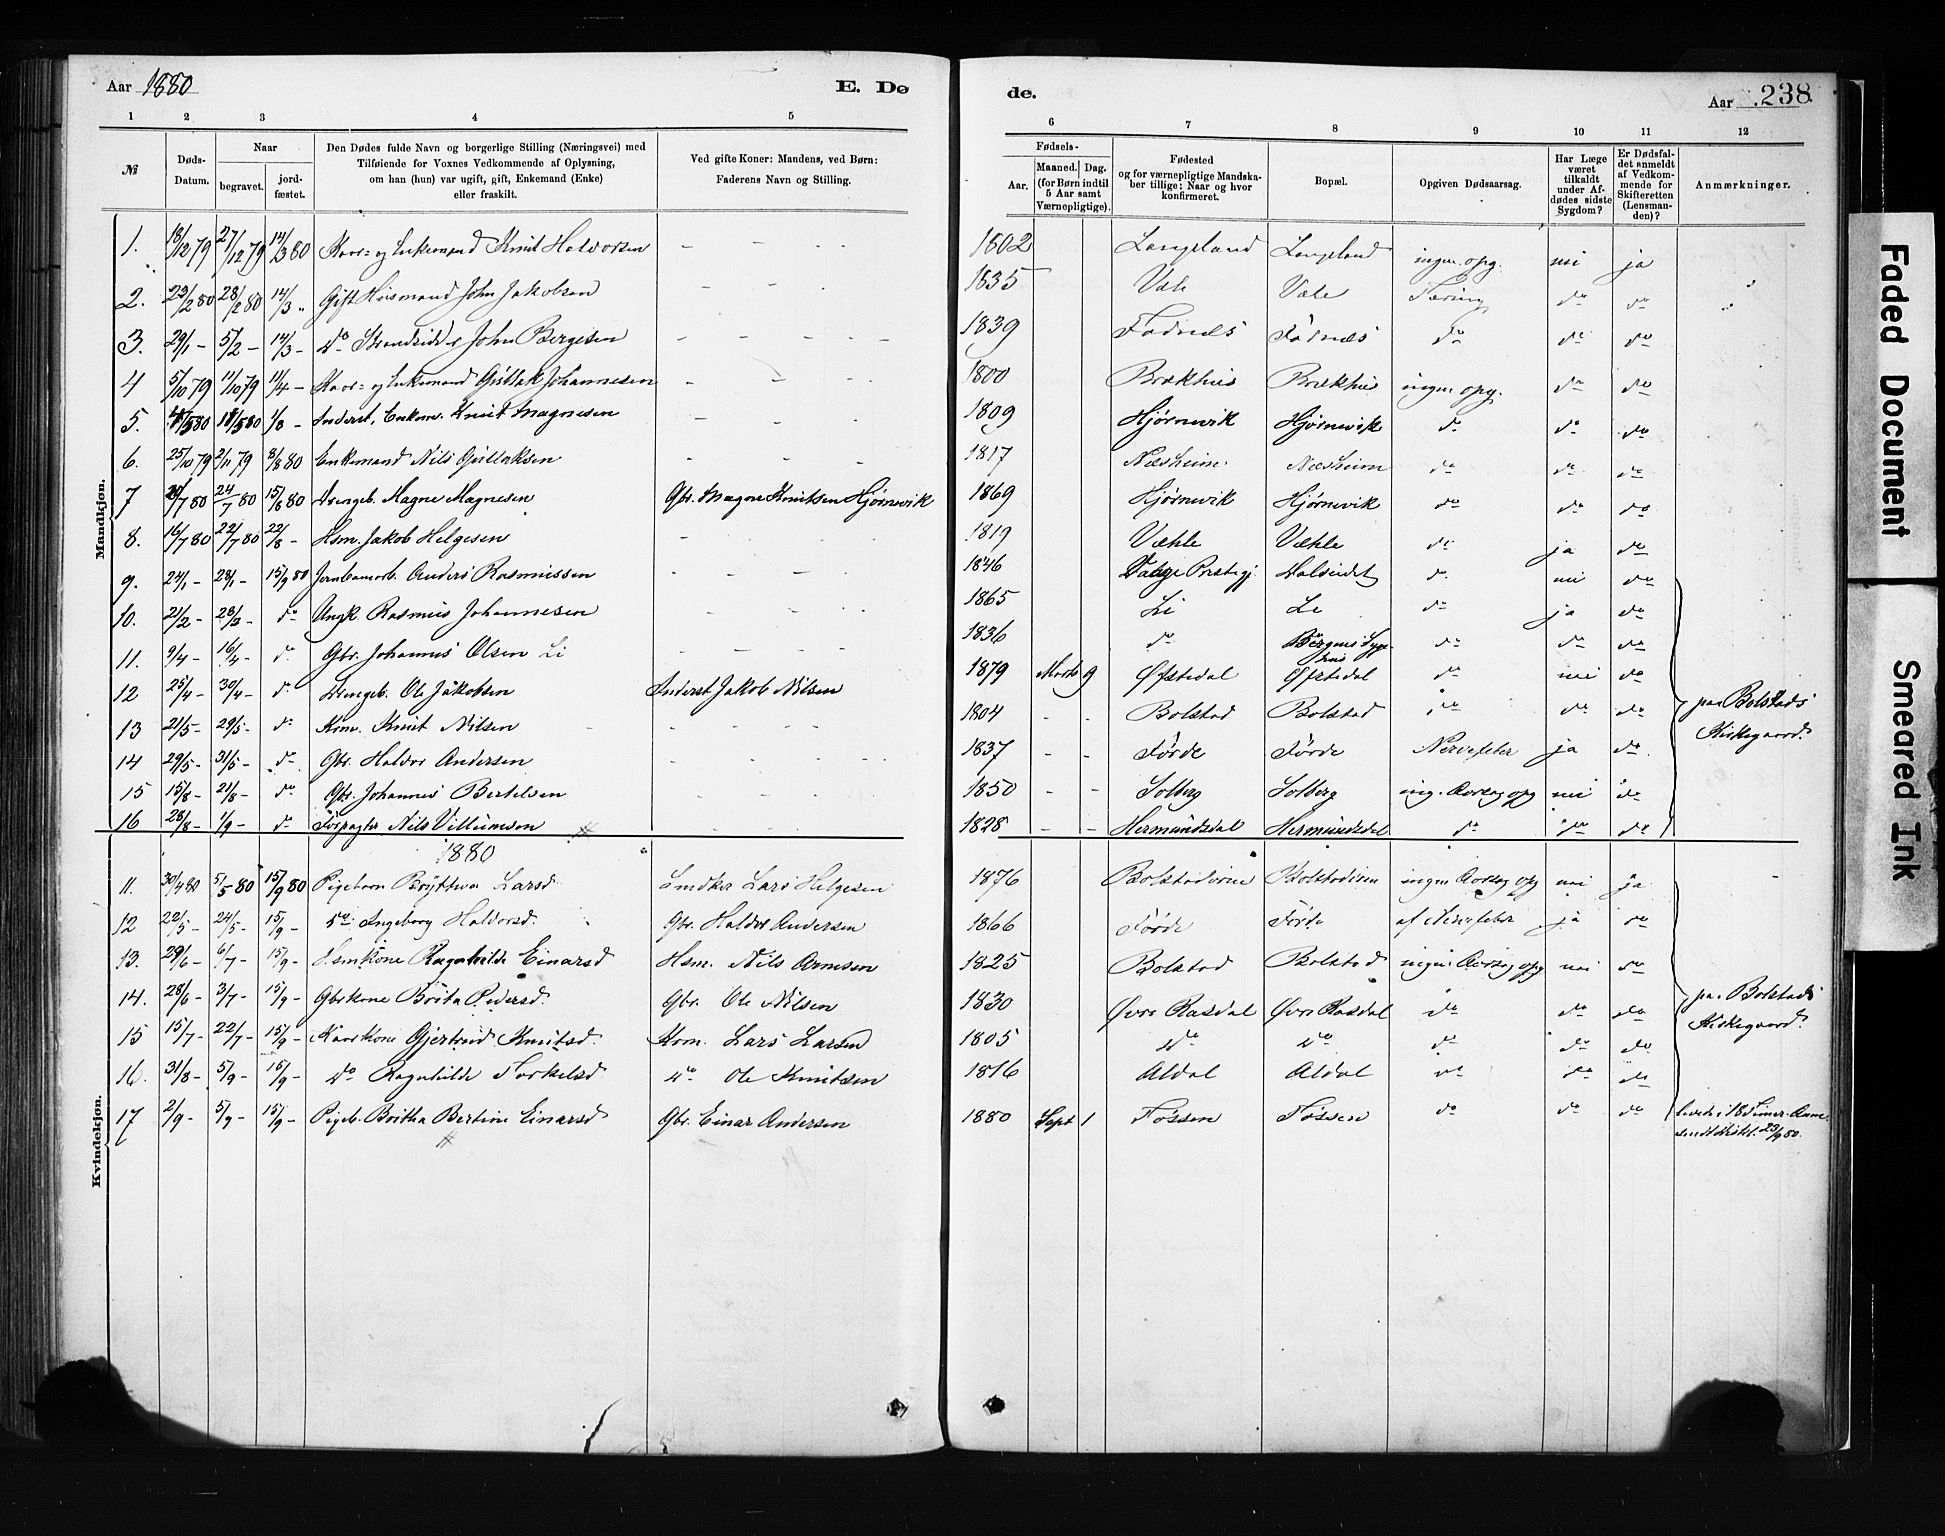 Aar 1880 E. Dø de. Aar 238
1 2 3 4 5 6 7 8 9 10 11 12
№ Døds-Datum. Naar begravet. jordfæstet. Den Dødes fulde Navn og borgerlige Stilling (Næringsvei) med Tilføiende for Voxnes Vedkommende af Oplysning, om han (hun) var ugift, gift, Enkemand (Enke) eller fraskilt. Ved gifte Koner: Mandens, ved Børn: Faderens Navn og Stilling. Fødsels- Aar. Maaned. Dag. (for Børn indtil 5 Aar samt Værnepligtige). Fødested og for værnepligtige Mandskaber tillige: Naar og hvor konfirmeret. Bopæl. Opgiven Dødsaarsag. Har Læge været tilkaldt under Afdødes sidste Sygdom? Er Dødsfaldet anmeldt af Vedkommende for Skifteretten (Lensmanden)? Anmærkninger.
Mandkjøn.
1. 18/12 79 27/12 79 14/3 80 Kaar- og Enkemand Knut Halvorsen 1802 Langeland Langeland ingen opg. nei ja
2. 23/2 80 28/2 80 14/3 " Gift Husmand John Jakobsen 1835 Væle Væle Tæring do do
3. 29/1 - 5/2 - 14/3 - do Strandsidder John Bergesen 1839 Fadnæs Fadnæs do do do
4 5/10 79 11/10 79 11/4 - Kaar- og Enkemand Gullak Johannesen 1800 Brækhus Brækhus ingen opg. do do
5. 11/5 80 1/8 - Inderst. Enkem. Knut Magnesen 1809 Hjørnevik Hjørnevik do do do
6. 25/10 79 2/11 79 8/8 80 Enkemand Nils Gullaksen 1817 Næsheim Næsheim do do do
7 /7 80 24/7 80 15/8 80 Drengeb. Magne Magnesen Gbr. Magne Knutsen Hjørnevik 1869 Hjørnevik Hjørnevik do do do
8. 16/7 80 22/7 80 22/8 - Hsm. Jakob Helgesen 1819 Væhle Væhle do ja do
9. 24/1 - 28/1 - 15/9 80 Jernbanearb. Anders Rasmussen 1846 Præstegj. do nei do
10. 21/2 - 28/2 - do Ungk. Rasmus Johannesen 1865 Li Li do ja do
11. 9/4 - 16/4 - do Gbr. Johannes Olsen Li 1836 do Bergens Sygehus do do do
12 25/4 - 30/4 - do Drengeb. Ole Jakobsen Inderst Jakob Nilsen 1879 Marts 9 Øfstedal Øfstedal do nei do
13 21/5 - 29/5 - do Krm. Knut Nilsen 1804 - - Bolstad Bolstad do do do
14 29/5 - 31/5 - do Gbr. Haldor Andersen 1837 - - Førde Førde Nervefeber ja do
15 15/8 - 21/8 - do Gbr. Johannes Bertelsen 1850 - - Solberg Solberg ing. Aarsag opg nei do
16 28/8 - 1/9 - do Forpagter Nils Villumsen 1828 - - Hermundsdal Hermundsdal do do do
paa Bolstads Kirkegaard.
Kvindekjøn.
1880
11. 30/4 80 5/5 80 15/9 80 Pigebarn Brytteva Larsd. Larś Helgesen 1876 Bolstadøren Bolstadøren ingen Aarsag opg nei ja
12 22/5 - 24/5 - 15/9 - do Ingeborg Haldorsd. Gbr. Haldor Andersen 1866 Førde Førde af Nervefeber ja do
13. 29/6 - 6/7 - 15/9 - Hsmkone Ragnhilde Einarsd Hsm. Nils Arnesen 1825 Bolstad Bolstad ingen Aarsag opg nei do
14. 28/6 - 3/7 - 15/9 - Gbrkone Brita Pedersd. Gbr. Ole Nilsen 1830 Øvre Rasdal Øvre Rasdal do do do
15 15/7 - 22/7 - 15/9 - Kaarkone Gjertrud Knutsd. Krm. Lars Larsen 1805 do do do do do
16. 31/8 - 5/9 - 15/9 - do Ragnhilde Torkelsd do Ole Knutsen 1816 Aldal Aldal do do do
17 2/9 - 5/9 - 15/9 - Pigeb. Britha Bertine Einarsd Gbr. Einar Andersen 1880 Sept 1 Fossen Fossen do do do levede i 18 Timer.
paa Bolstads Kirkegaard.
Faded Document
Smeared Ink